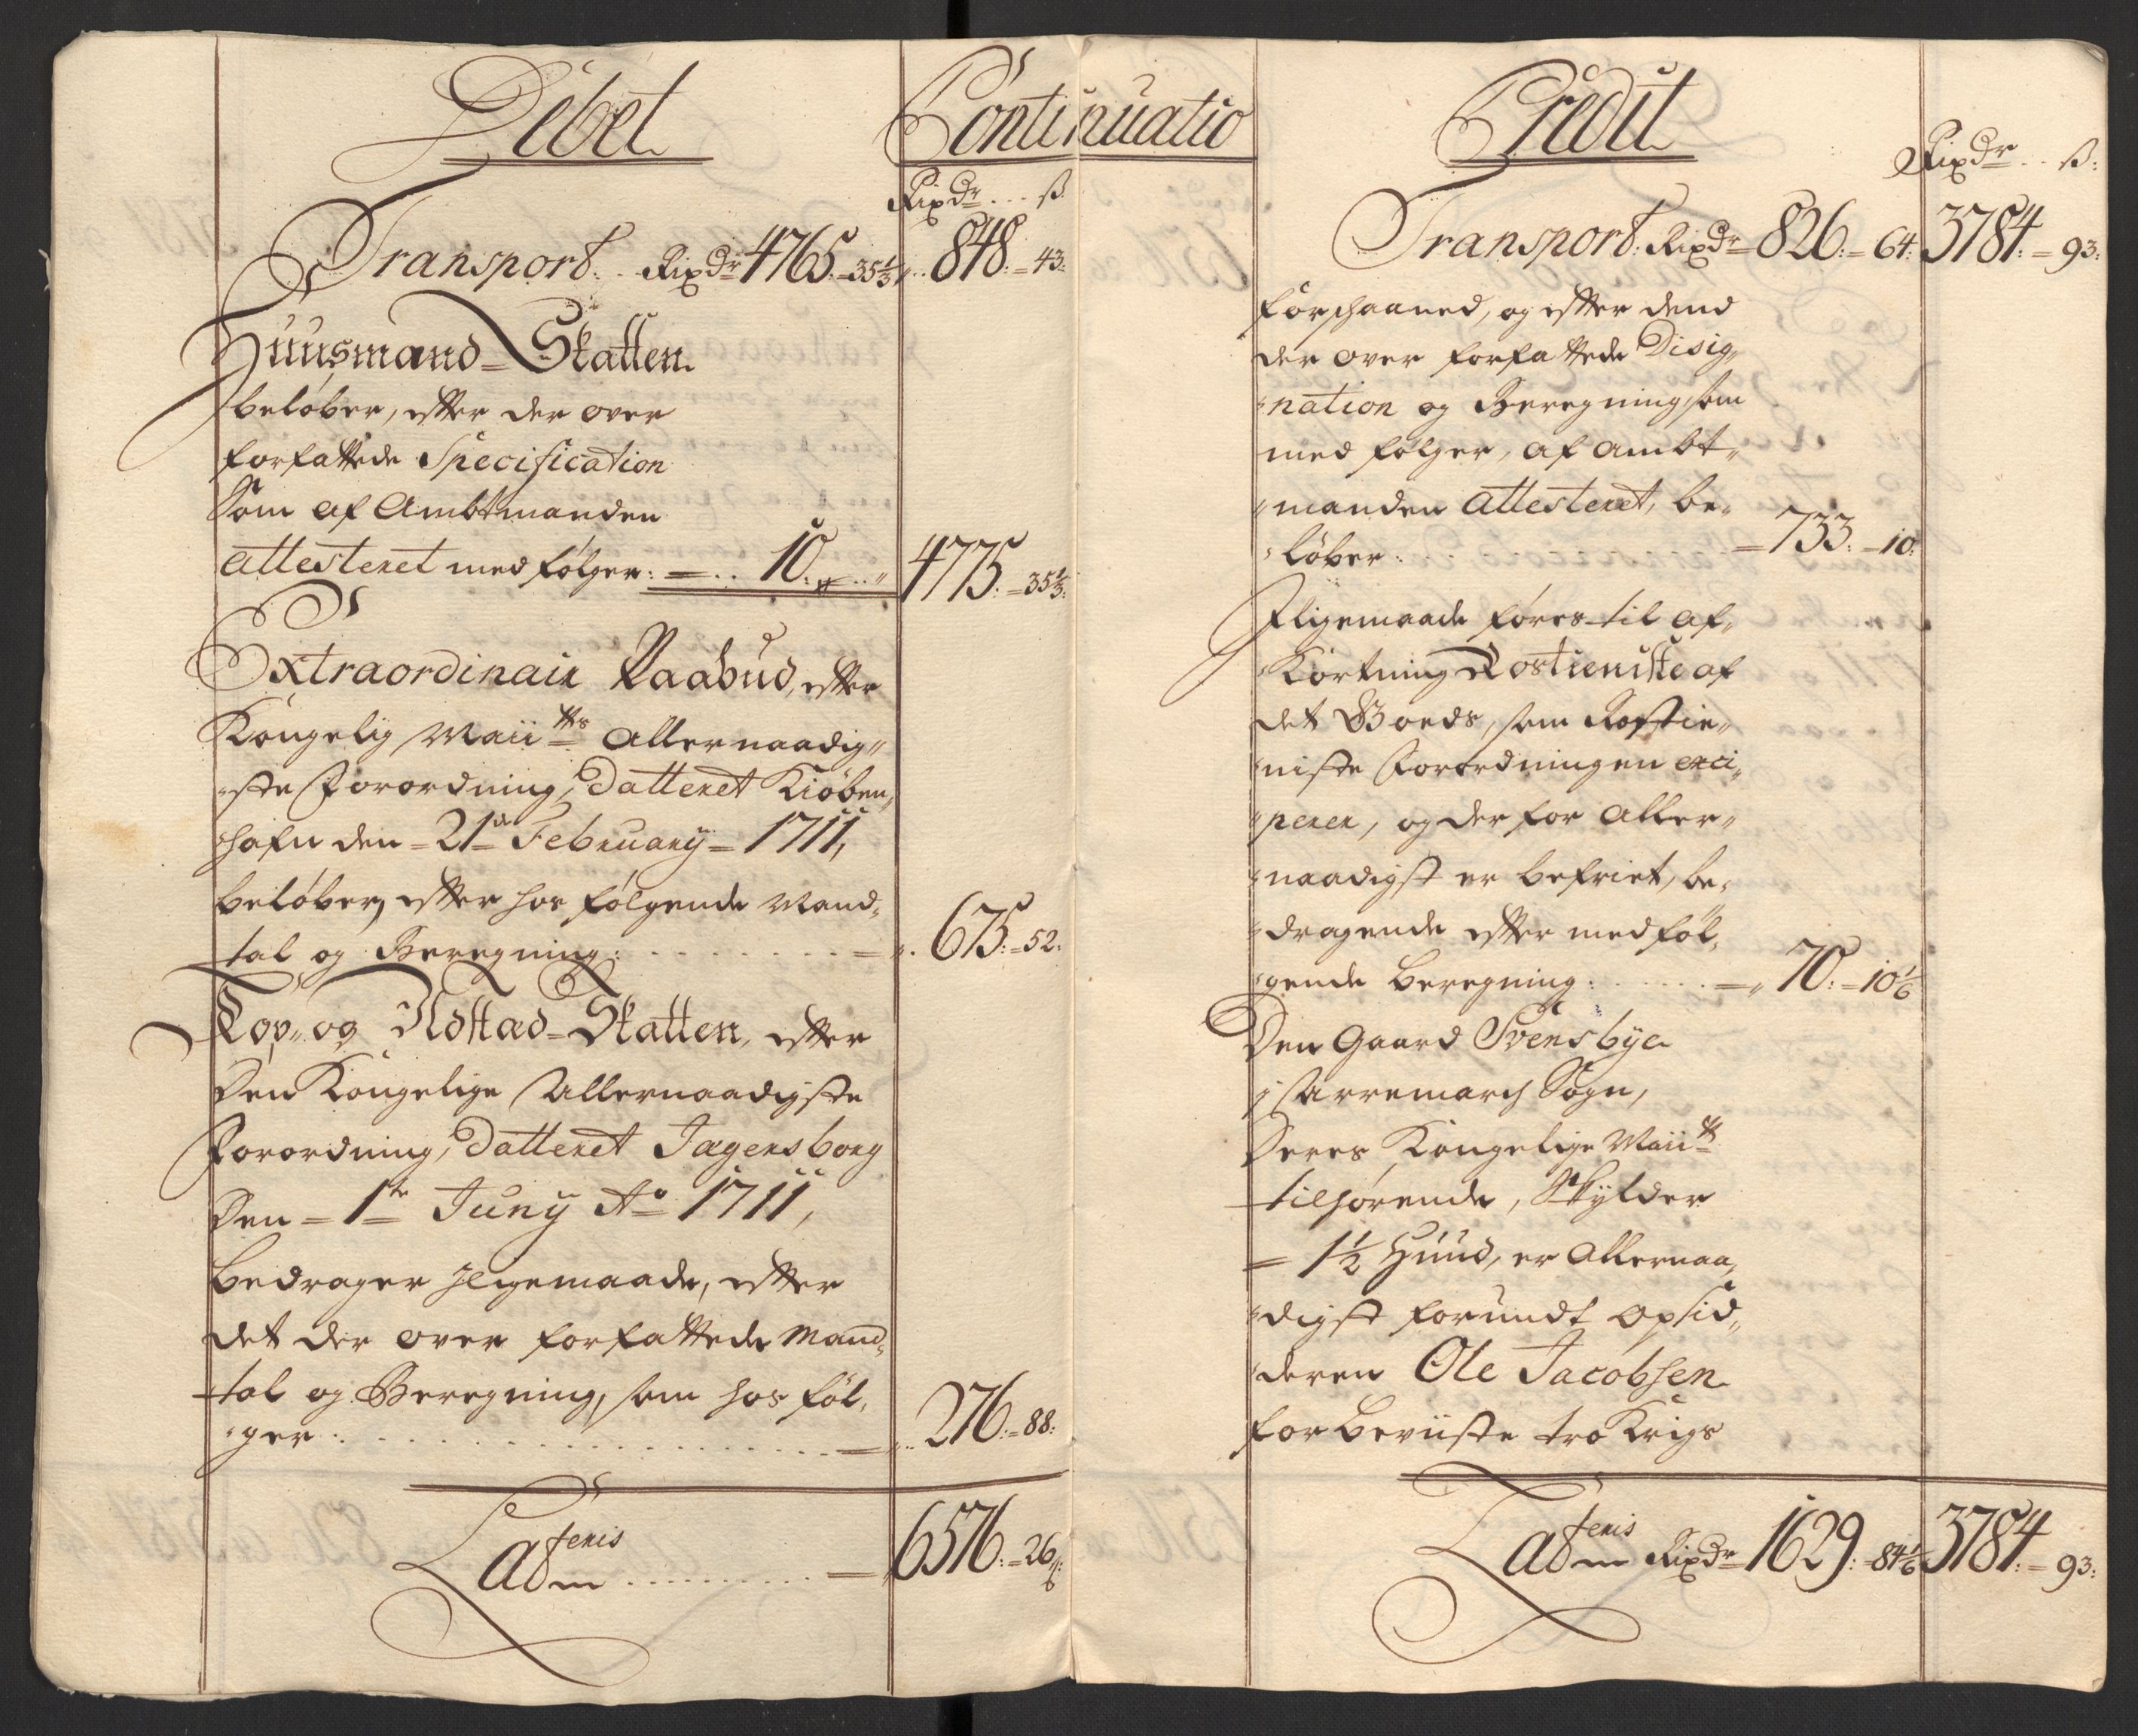 Debet
Continuatio
Rixdr ... ß
Transport. .. Rixdr 4765.-35⅓ .. 848.-43.
Huusmand-Skatten.
beløber, efter der over
forfattede Specification
Som af Ambtmanden
attesteret med følger. =.. 10. ... 4775.-35⅓.
Extraordinair Paabud, efter
Kongelig Maii tts Allernaadig„
„ste Forordning, Datteret Kiöben„
„hafn den =21de February= 1711,
beløber, efter hos følgende Mand„
„tal og Beregning: . . . . . =„. 675.=52.
og Ildstæd-Skatten, efter
Den Kongelige Allernaadigste
Forordning, Datteret Jægersborg
Den =1te Juny Ao 1711,
bedrager jligemaade, efter
det der over forfattede Mand„
„tal og Beregning, som hos föl„
„ger . . . . . . =„.. 276.=88.
Lateris .......... = 6576.=26
Credit
Rixdr .. ß:
Transport. Rixdr 826.=64. 3784.=93.
forschaaned, og efter dend
der over forfattede Disig„
„nation og Beregning, som
med følger, af Ambt„
„manden attesteret, be„
„løber. . . . =733.=10.
Jligemaade føres til af„
„Kortning Rostieniste af
det Goeds, som Rostie„
„niste Forordningen exci„
„perer, og der for aller„
„naadigst er befriet, be„
„dragende efter med föl„
„gende beregning. . . . =„ 70.=10⅙
Den Gaard Svensbye
j Aremarch Sogn,
Deres Kongelige Maii tt
tilhørende, Skylder
= 1½ Huud, er Allernaa„
„digst forundt Opsid„
„deren Ole Jacobsen
for beviiste tro Krigs
Lateris Rixdr 1629.=84⅙ 3784.=93.